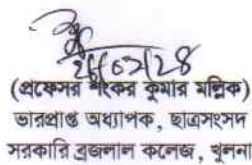 ২৮/০২/২৪
(প্রফেসর শংকর কুমার মল্লিক)
ভারপ্রাপ্ত অধ্যাপক, ছাত্রসংসদ
সরকারি ব্রজলাল কলেজ, খুলনা